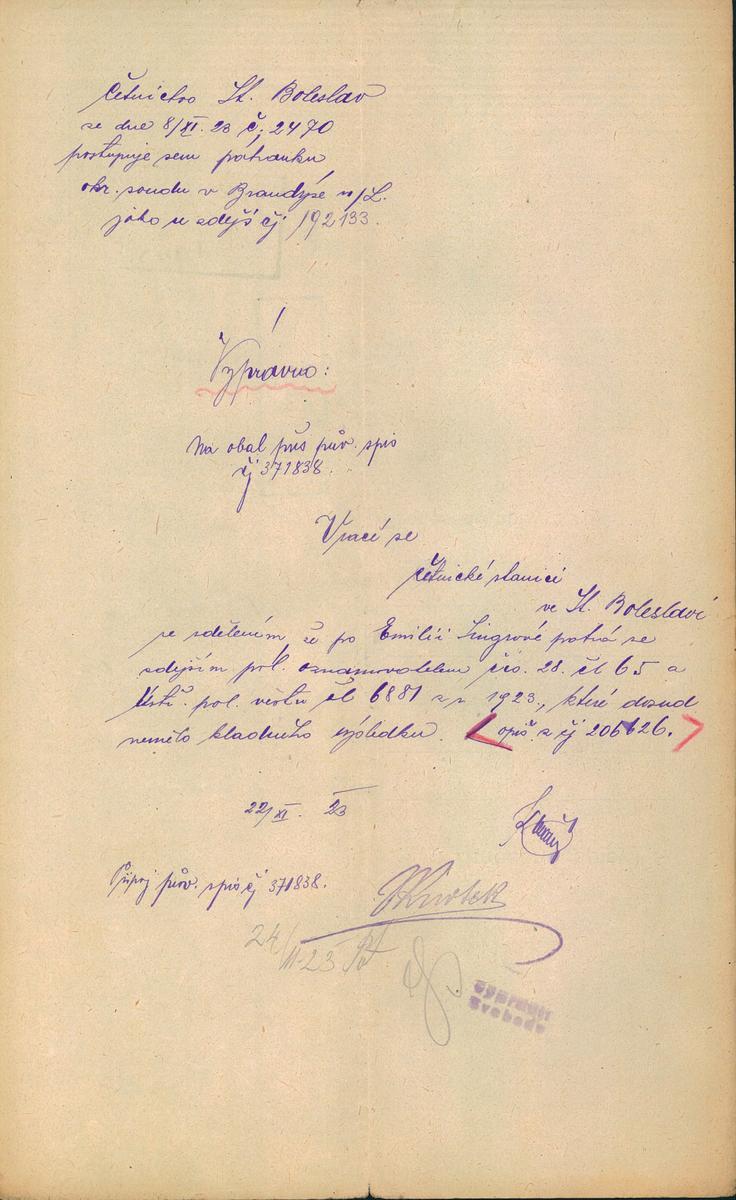 Četnictvo St. Boleslav
ze dne 8/XI. 23 č. 2470
postupuje sem pátranku
okr. soudu v Brandýse n/L.
jako u zdejš čj 192133.
Výpravno:
Na obal přes pův. spis
čj 371838.
Vrací se
četnické stanici
ve St. Boleslavi
se sdělením, že po Emilii Singrové pátrá se
zdejším pol. oznamovatelem čís. 28. čl 65 a
Ústř. pol. věstn čl 6881 z r. 1923, které dosud
nemělo kladného výsledku. < opiš z čj 206126. >
22/XI. 23
Připoj pův. spis čj 371838.
24/
11-23
Vypravil
Svoboda